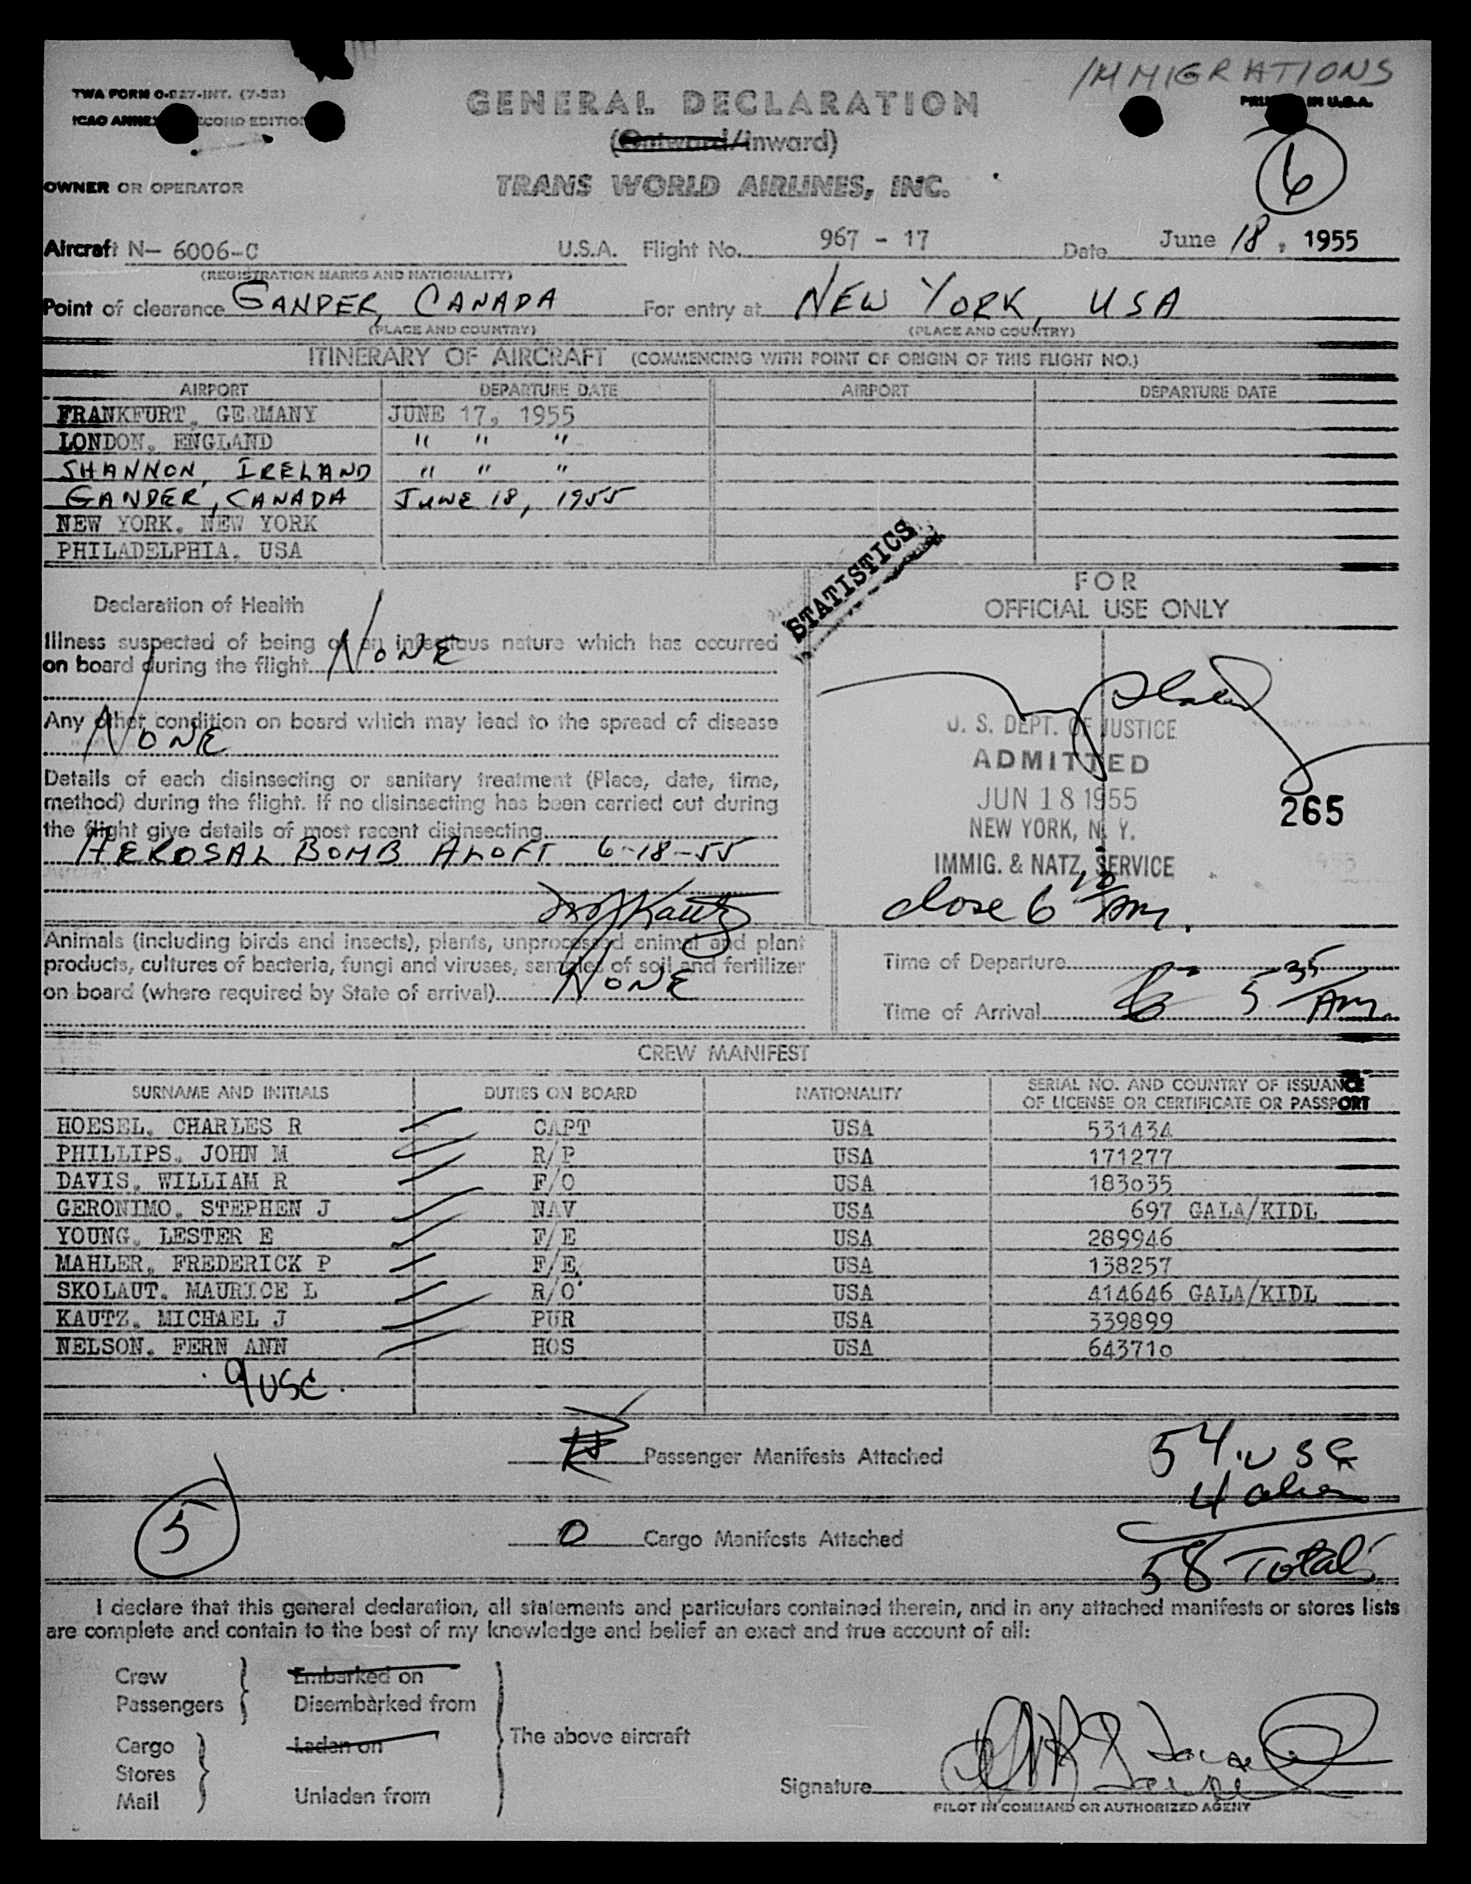 IMMIGRATIONS
TWA FORM O-927-INT. (7-53)
GENERAL DECLARATION
IN U.S.A.
ICAO ECOND EDITION
(Outward/Inward)
6
OWNER OR OPERATOR TRANS WORLD AIRLINES, INC.
Aircraft N- 6006-C U.S.A. Flight No. 967 - 17 Date June 18, 1955
(REGISTRATION MARKS AND NATIONALITY)
Point of clearance GANDER, CANADA For entry at NEW YORK, USA
(PLACE AND COUNTRY) (PLACE AND COUNTRY)
ITINERARY OF AIRCRAFT (COMMENCING WITH POINT OF ORIGIN OF THIS FLIGHT NO.)
AIRPORT DEPARTURE DATE AIRPORT DEPARTURE DATE
FRANKFURT, GERMANY JUNE 17, 1955
LONDON, ENGLAND " " "
SHANNON, IRELAND " " "
GANDER, CANADA JUNE 18, 1955
NEW YORK, NEW YORK
PHILADELPHIA, USA
STATISTICS
FOR
OFFICIAL USE ONLY
Declaration of Health
Illness suspected of being of an infectious nature which has occurred
on board during the flight NONE
Any other condition on board which may lead to the spread of disease
NONE
Details of each disinsecting or sanitary treatment (Place, date, time,
method) during the flight. If no disinsecting has been carried out during
the flight give details of most recent disinsecting
AEROSAL BOMB ALOFT 6-18-55
U. S. DEPT. OF JUSTICE
ADMITTED
JUN 18 1955
NEW YORK, N. Y.
IMMIG. & NATZ. SERVICE
265
close 6 10 AM.
Animals (including birds and insects), plants, unprocessed animal and plant
products, cultures of bacteria, fungi and viruses, samples of soil and fertilizer
on board (where required by State of arrival) NONE
Time of Departure
Time of Arrival 5 35 AM.
CREW MANIFEST
SURNAME AND INITIALS DUTIES ON BOARD NATIONALITY SERIAL NO. AND COUNTRY OF ISSUANCE
OF LICENSE OR CERTIFICATE OR PASSPORT
HOESEL, CHARLES R CAPT USA 531434
PHILLIPS, JOHN M R/P USA 171277
DAVIS, WILLIAM R F/O USA 183035
GERONIMO, STEPHEN J NAV USA 697 GALA/KIDL
YOUNG, LESTER E F/E USA 289946
MAHLER, FREDERICK P F/E USA 138257
SKOLAUT, MAURICE L R/O USA 414646 GALA/KIDL
KAUTZ, MICHAEL J PUR USA 339899
NELSON, FERN ANN HOS USA 643710
9 USC.
Passenger Manifests Attached
54 USC
4 alien
5
0 Cargo Manifests Attached
58 Total
I declare that this general declaration, all statements and particulars contained therein, and in any attached manifests or stores lists
are complete and contain to the best of my knowledge and belief an exact and true account of all:
Crew Embarked on
Passengers Disembarked from
The above aircraft
Cargo Laden on
Stores
Mail Unladen from
Signature
PILOT IN COMMAND OR AUTHORIZED AGENT